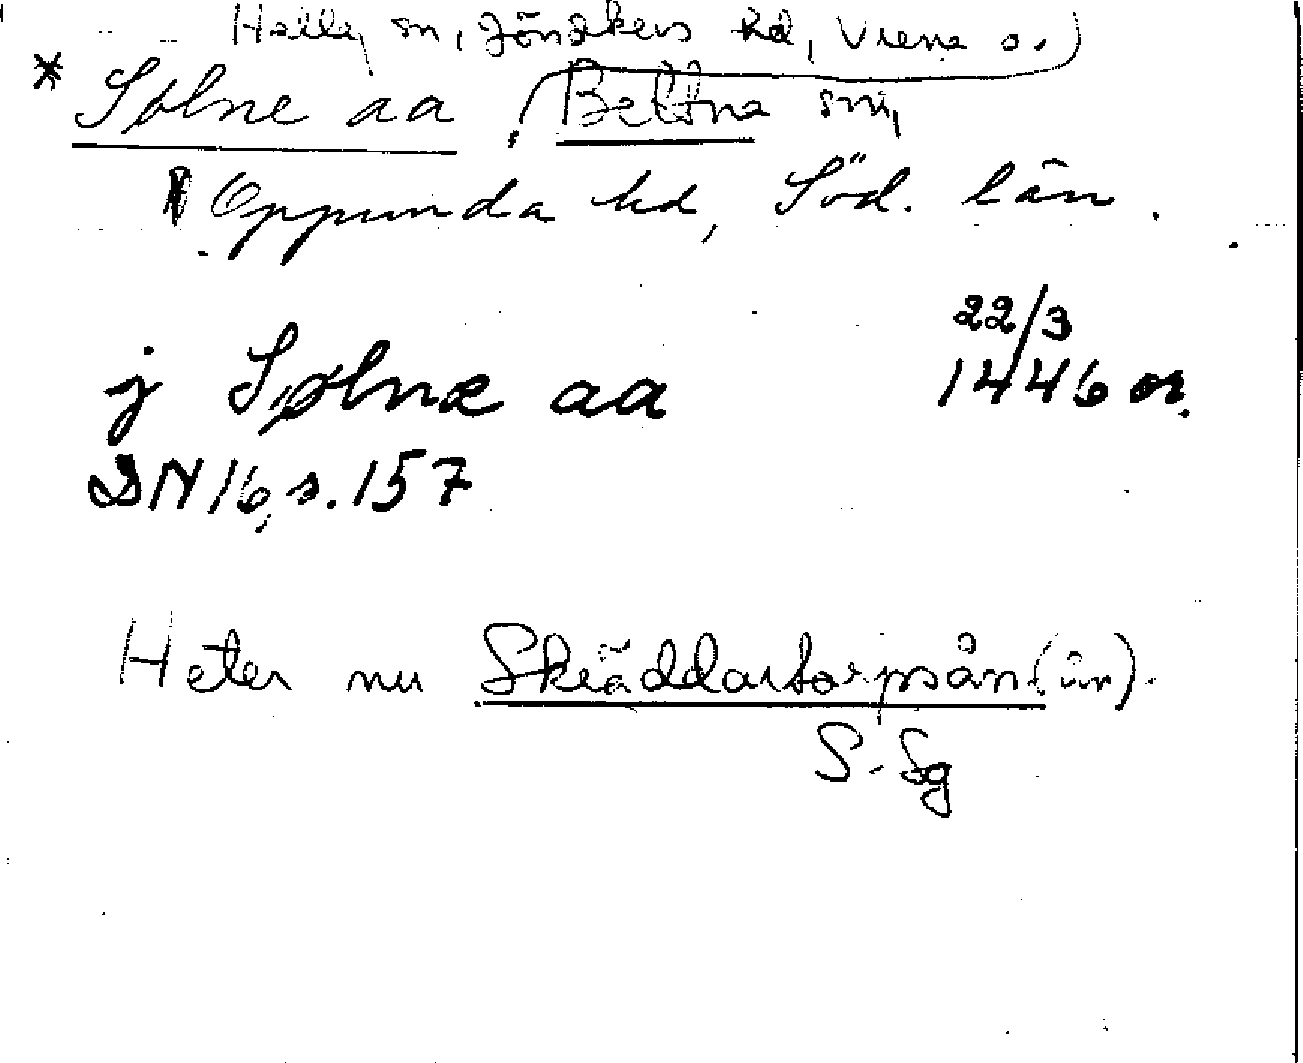 Halla sn, Jönåkers hd, Vrena o.)
* Sølne aa, Bettna sn,
Oppunda hd, Söd. län.
22/3
j Sølnæ aa 1446 or.
DN 16, s. 157
Heter nu Skräddartorpsån (ån).
S. Sg